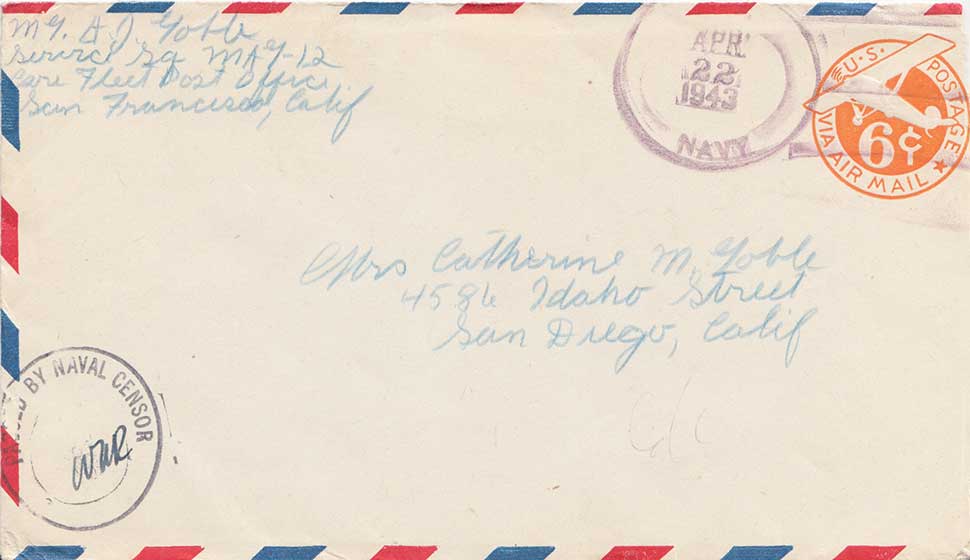 MG. A J. Goble
Service Sq MAG-12
Care Fleet Post Office
San Francisco, Calif
APR
22
1943
NAVY
U.S. POSTAGE
6¢
VIA AIR MAIL
Mrs Catherine M. Goble
4586 Idaho Street
San Diego, Calif
PASSED BY NAVAL CENSOR